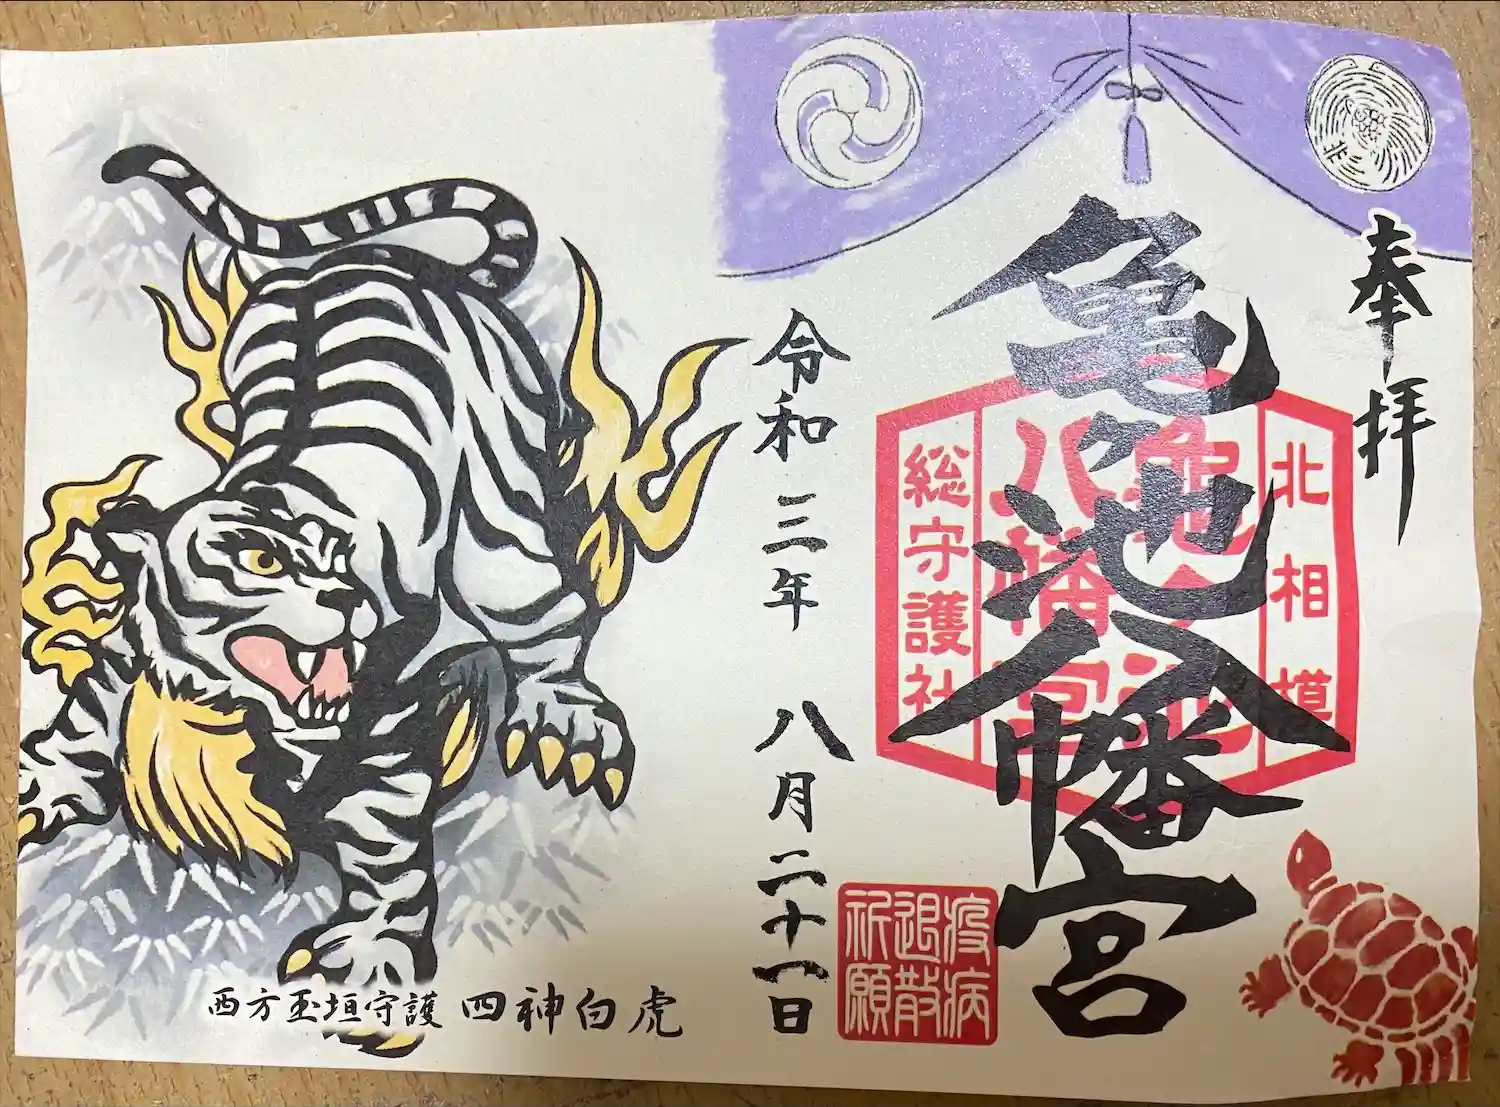 奉拝
亀ヶ池八幡宮
北相模
亀ヶ池
八幡宮
総守護社
疫病
退散
祈願
令和三年 八月二十一日
西方玉垣守護 四神白虎